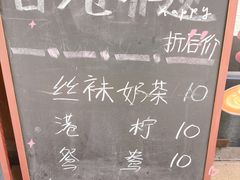 happy
折后价
丝袜奶茶 10
港柠 10
鸳鸯 10